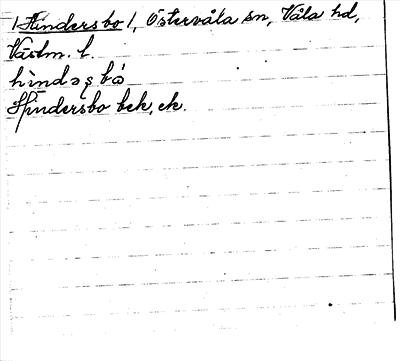 /Hindersbo/, Östervåla sn, Våla hd,
Västm. l.
hìndəʂbò
Hindersbo bek, ek.